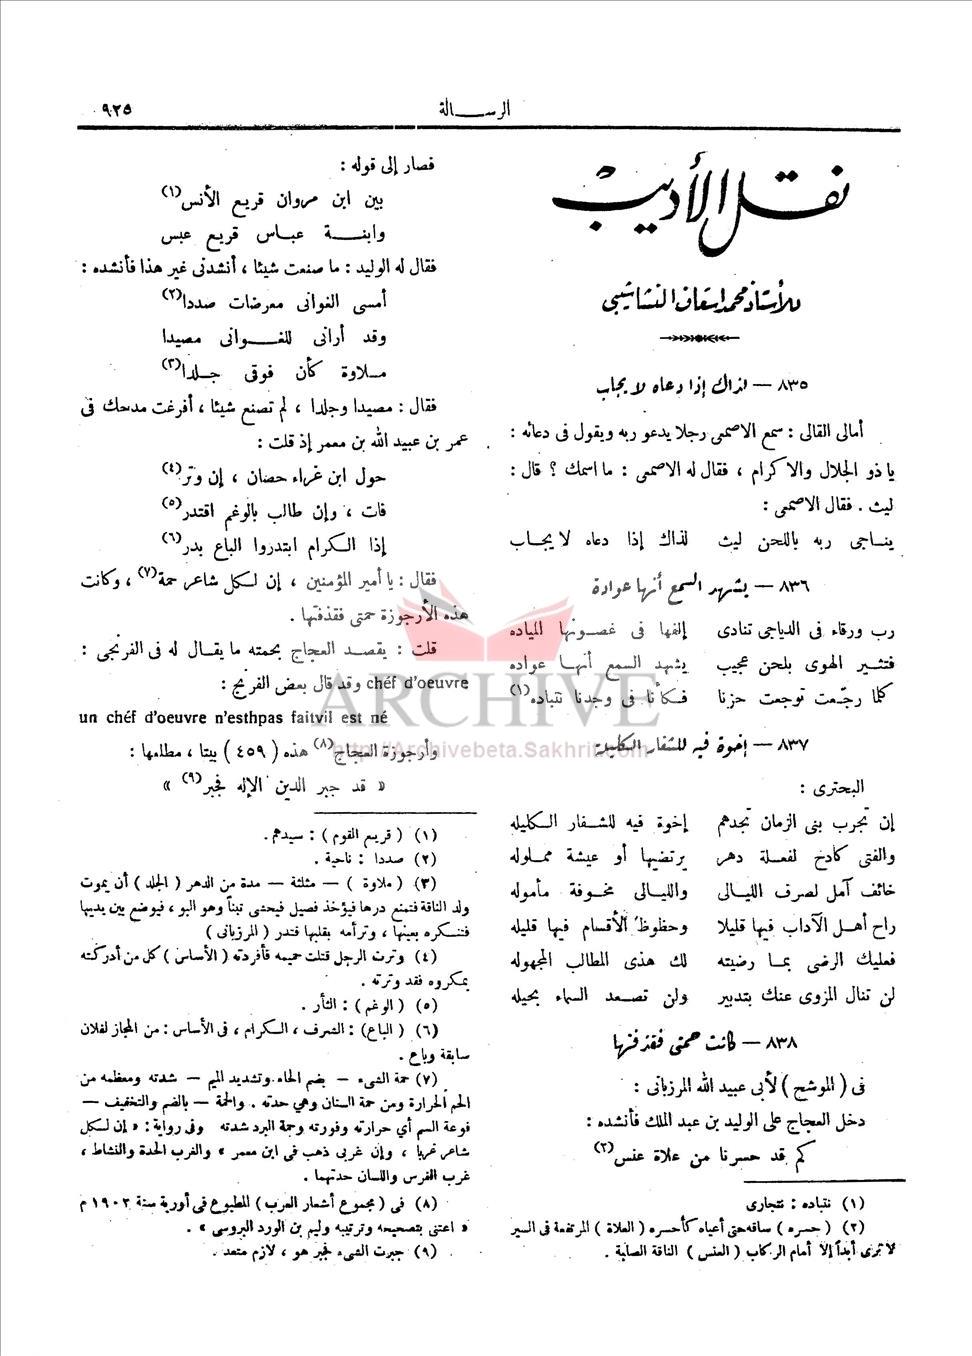 الرســـالة
٩٢٥
نقل الأديب
للأستاذ محمد إسعاف النشاشيبي
٨٣٥ — لذاك إذا دعاه لا يجاب
أمالى القالى : سمع الاصمى رجلا يدعو ربه ويقول فى دعائه :
يا ذو الجلال والاكرام ، فقال له الاصمى : ما اسمك ؟ قال :
ليث . فقال الاصمى :
ينـاجى ربه باللحن ليث لذاك إذا دعاه لا يجـاب
٨٣٦ — يشهد السمع أنها عوادة
رب ورقاء فى الدياجى تنادى إلفها فى غصونها المياده
فتثير الهوى بلحن عجيب يشهد السمع أنهـا عواده
كلما رجّعت توجعت حزنا فـكأنا فى وجدنا نتباده(١)
٨٣٧ — إخوة فيه للشفار الكليلة
البحترى :
إن تجرب بنى الزمان تجدهم إخوة فيه للشفار الكليله
والفتى كادح لفعلة دهر يرتضيها أو عيشة مملوله
خائف آمل لصرف الليالى والليالى مخوفة مأموله
راح أهل الآداب فيها قليلا وحظوظ الأقسام فيها قليله
فعليك الرضى بما رضيته لك هذى المطالب المجهوله
لن تنال المزوى عنك بتدبير ولن تصعد السماء بحيله
٨٣٨ — كانت حمتى فقذفتها
فى ( الموشح ) لأبى عبيد الله المرزبانى :
دخل العجاج على الوليد بن عبد الملك فأنشده :
كم قد حسرنا من علاة عنس(٢)
(١) نتباده : نتجارى
(٢) ( حسره ) ساقه حتى أعياه كأحسره ( العلاة ) المرتفعة فى السير
لا ترى أبداً إلا أمام الركاب ( العنس ) الناقة الصلبة .
فصار إلى قوله :
بين ابن مروان قريع الأنس(١)
وابنـــة عباس قريع عبس
فقال له الوليد : ما صنعت شيئا ، أنشدنى غير هذا فأنشده :
أمسى الغوانى معرضات صددا(٢)
وقد أرانى للغــوانى مصيدا
مـلاوة كأن فوقى جـلدا(٣)
فقال : مصيدا وجلدا ، لم تصنع شيئا ، أفرغت مدحك فى
عمر بن عبيد الله بن معمر إذ قلت :
حول ابن غراء حصان ، إن وتر(٤)
فات ، وإن طالب بالوغم اقتدر(٥)
إذا الكرام ابتدروا الباع بدر(٦)
فقال : يا أمير المؤمنين ، إن لكل شاعر حمة(٧) ، وكانت
هذه الأرجوزة حمتى فقذفتها .
قلت : يقصد العجاج بحمته ما يقال له فى الفرنجى :
chéf d'oeuvre وقد قال بعض الفرنج :
un chéf d'oeuvre n'esthpas faitvil est né
وأرجوزة العجاج(٨) هذه ( ٤٥٩ ) بيتا ، مطلعها :
« قد جبر الدين الإله فجبر(٩) »
(١) ( قريع القوم ) : سيدهم .
(٢) صددا : ناحية .
(٣) ( ملاوة ) — مثلثة — مدة من الدهر ( الجلد ) أن يموت
ولد الناقة فتمنع درها فيؤخذ فصيل فيحشى تبناً وهو البو ، فيوضع بين يديها
فتنكره بعينها ، وترأمه بقلبها فتدر ( المرزبانى )
(٤) وترت الرجل قتلت حميمه فأفردته ( الأساس ) كل من أدركته
بمكروه فقد وترته .
(٥) ( الوغم ) : الثأر .
(٦) ( الباع ) : الشرف ، الكرام ، فى الأساس : من المجاز لفلان
سابقة وباع .
(٧) حمة الشىء — بضم الحاء وتشديد الميم — شدته ومعظمه من
الحم الحرارة ومن حمة السنان وهى حدته . والحمة — بالضم والتخفيف —
فوعة السم أي حرارته وفورته وحمة البرد شدته وفى رواية : « إن لكل
شاعر غربا ، وإن غربى ذهب فى ابن معمر » والغرب الحدة والنشاط ،
غرب الفرس واللسان حدتهما .
(٨) فى ( مجموع أشعار العرب ) المطبوع فى أوربة سنة ١٩٠٣ م
« اعتنى بتصحيحه وترتيبه وليم بن الورد البروسى » .
(٩) جبرت الشىء فجبر هو ، لازم متعد .
ARCHIVE
http://Archivebeta.Sakhrit.com